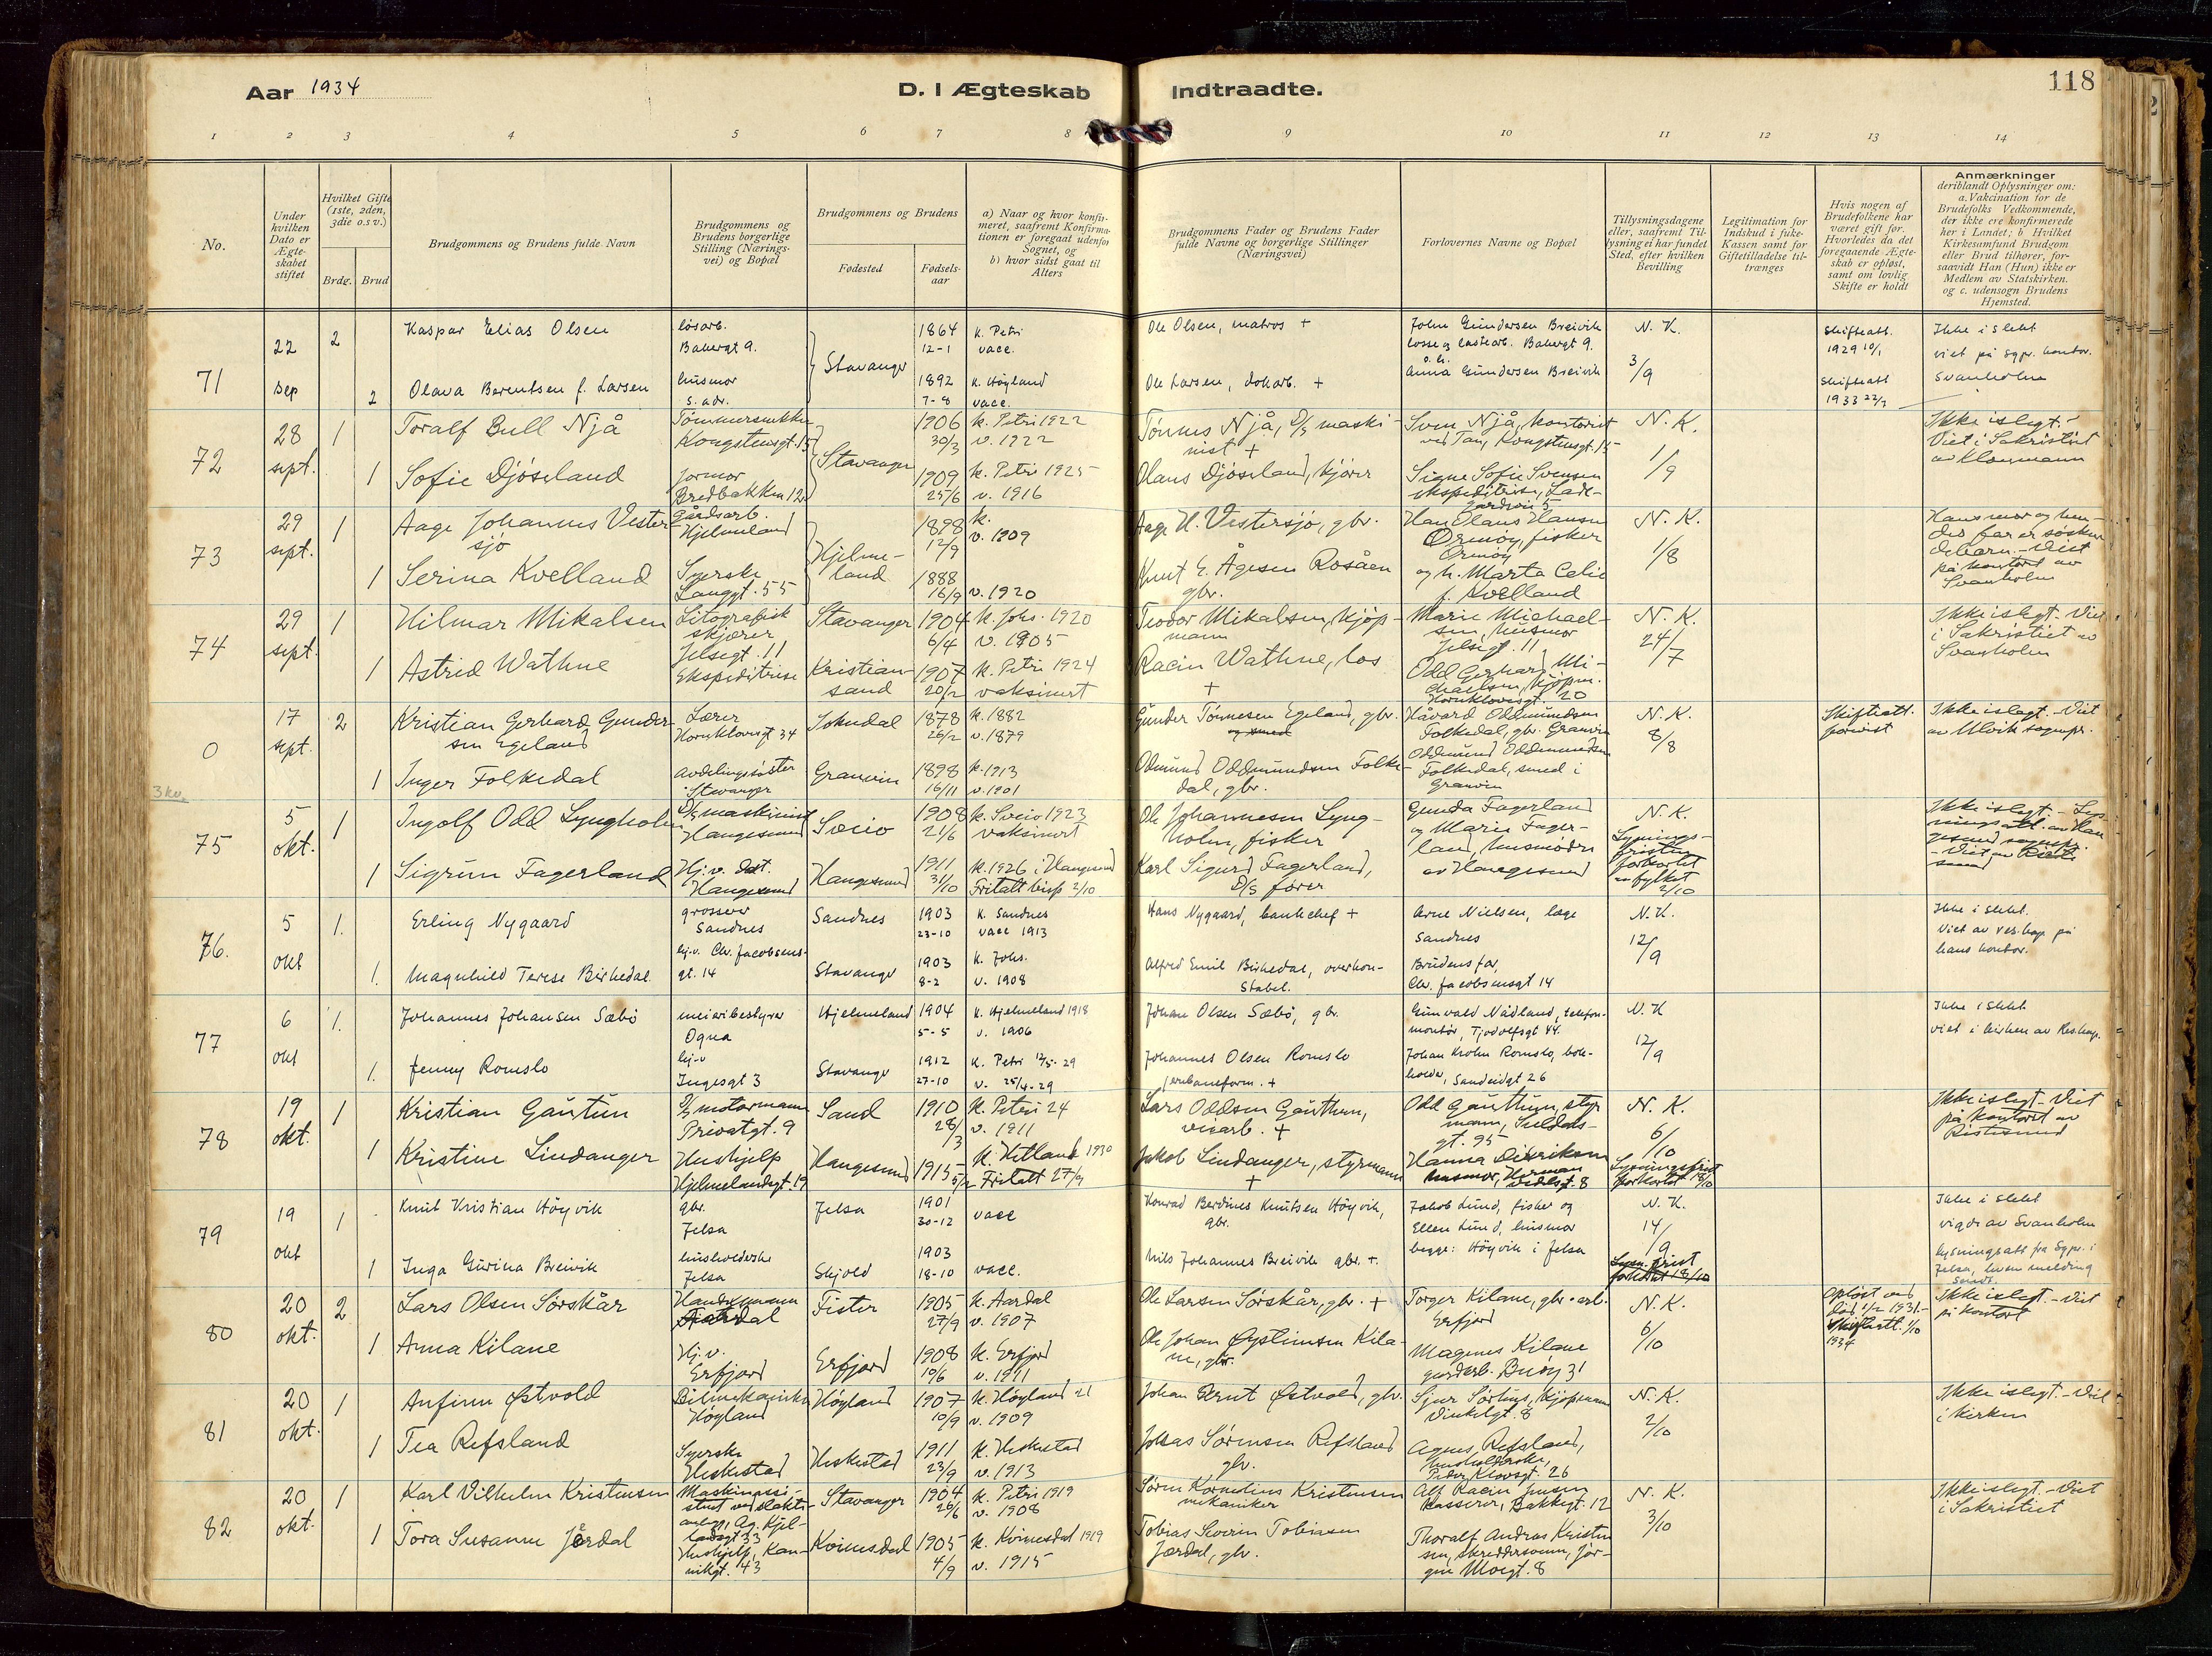 118
Aar 1934
D. I Ægteskab Indtraadte.
1 2 3 4 5 6 7 8 9 10 11 12 13 14
No.
Under hvilken Dato er Ægteskabet stiftet
Hvilket Gifte (1ste, 2den, 3die o.s.v.)
Brdg. Brud
Brudgommens og Brudens fulde Navn
Brudgommens og Brudens borgerlige Stilling (Næringsvei) og Bopæl
Brudgommens og Brudens
Fødested
Fødselsaar
a) Naar og hvor konfirmeret, saafremt Konfirmationen er foregaat udenfor Sognet, og
b) hvor sidst gaat til Alters
Brudgommens Fader og Brudens Fader fulde Navne og borgerlige Stillinger (Næringsvei)
Forlovernes Navne og Bopæl
Tillysningsdagene eller, saafremt Tillysning ei har fundet Sted, efter hvilken Bevilling
Legitimation for Indskud i Enke-Kassen samt for Giftetilladelse tiltrænges
Hvis nogen af Brudefolkene har været gift før. Hvorledes da det foregaaende Ægteskab er opløst, samt om lovlig Skifte er holdt
Anmærkninger
deriblandt Oplysninger om: a. Vakcination for de Brudefolks Vedkommende, der ikke ere konfirmerede her i Landet; b Hvilket Kirkesamfund Brudgom eller Brud tilhører, forsaavidt Han (Hun) ikke er Medlem av Statskirken. og c. udensogn Brudens Hjemsted.
71 22 sep 2 Kaspar Elias Olsen løsarb. Bakergt 9. Stavanger 1864 12-1 k. Petri vacc. Ole Olsen, matros + John Gundersen Breivik losse og lastearb. Bakergt 9. N. K. 3/9 Skifteatt. 1929 10/1 Ikke i slekt viet på sgpr. kontor. Svanholm
2 Olava Berentsen f. Larsen husmor s. adr. 1892 7-8 k. Høyland vacc. Ole Larsen, dokarb. + Anna Gundersen Breivik Skifteatt 1933
72 28 sept. 1 Toralf Bull Njå Kongstensgt. 15 Stavanger 1906 30/3 k. Petri 1922 v. 1922 Tønnes Njå, D/S maskinist + Sven Njå, kontorist Kongstensgt. 15 N. K. 1/9 Ikke i slegt. - Viet i Sakristiet av
1 Sofie Djøseland Jormor Bredbakken 12 1909 25/6 k. Petri 1925 v. 1916 Hans Djøseland, kjører Signe Sofie Svensen
73 29 sept. 1 Aage Johannes Vestersjø Gårdsarb. Hjelmeland Hjelmeland 1898 12/9 k. v. 1909 Aage H. Vestersjø, gbr. Hans Olaus Hansen Ormøy, fisker Ormøy N. K. 1/8 Hans mor og hendes far er søskendebarn. - Viet på kontoret av Svanholm
1 Serina Kvelland Syerske Langgt. 55 1888 16/9 v. 1920 Knut E. Ågesen Rosåen gbr. og h. Marta f. Kvelland
74 29 sept. 1 Hilmar Mikalsen Litografisk Jelsegt. 11 Stavanger 1904 6/4 k. Johs. 1920 v. 1905 Teodor Mikalsen, kjøpmann Marie Michaelsen, husmor Jelsegt. 11 N. K. 24/7 Ikke i slegt. Viet i Sakristiet av Svanholm
1 Astrid Wathne Ekspeditrise Kristiansand 1907 20/2 k. Petri 1924 vaksinert Racin Wathne, los + Odd Gerhard Michaelsen, kjøpm. 20
0 17 sept. 2 Kristian Gerhard Gundersen Egeland Lærer 34 Sokndal 1878 26/2 k. 1882 v. 1879 Gunder Tønnesen Egeland, gbr. Håvard Oddmundsen Folkedal, gbr. Granvin N. K. 8/8 Skifteatt. forevist Ikke i slegt. - Viet av Ulvik sognepr.
1 Inger Folkedal Avdelingssøster Stavanger Granvin 1898 16/11 k. 1913 v. 1901 Odmund Oddmundsen Folkedal, gbr. Oddmund Oddmundsen Folkedal, smed i Granvin
3 kv.
75 5 okt. 1 Ingolf Odd Lyngholm D/S maskinist Haugesund Sveio 1908 21/6 k. Sveio 1923 vaksinert Ole Johannesen Lyngholm, fisker Gunda Fagerland og Marie Fagerland, husmødre av Haugesund N. K. Lysningsfristen forkortet av fylket 2/10 Ikke i slegt.
1 Sigrun Fagerland Hj. v. Haugesund Haugesund 1911 31/10 k. 1926 i Haugesund Fritatt bisp 2/10 Karl Sigurd Fagerland, D/S fører
76. 5 okt 1. Erling Nygaard grosserer Sandnes Sandnes 1903 23-10 k. Sandnes vacc 1913 Hans Nygaard, bankchef + Arne Nielsen, læge Sandnes N. K. 12/9 Ikke i slekt. Viet av res. kap på hans kontor.
1. Magnhild Terese Birkedal hj. v. Chr. Jacobsensgt. 14 Stavanger 1903 8-2 k. Johs. v. 1908 Alfred Emil Birkedal, overkonstabel. Brudens far, Chr. Jacobsensgt 14
77 6 okt 1. Johannes Johansen Sæbø meieribestyrer Ogna Hjelmeland 1904 5-5 k. Hjelmeland 1918 v. 1906 Johan Olsen Sæbö, gbr. Gunvald Nådland, telefonmontør, Tjodolfsgt 44. N. K 12/9 Ikke i slekt viet i kirken av Res. kap.
1. Jenny Romslo hj-v Ingesgt 3 Stavanger 1912 27-10 k. Petri 12/5-29 v. 25/4-29 Johannes Olsen Romslo jernbaneform. + Johan Krohn Romslo, bokholder, Sandeidgt 26
78 19 okt. 1 Kristian Gautun D/S motormann Privatgt. 9 Sand 1910 28/3 k. Petri 24 v. 1911 Lars Oddsen Gauthun, veiarb. + Odd Gauthun, styrmann, Suldalsgt. 95 N. K. 6/10 Lysningsfrist forkortet 18/10 Ikke i slegt - Viet på kontoret av
1 Kristine Lindanger Hushjelp Hjelmelandsgt. 19 Haugesund 1915 k. Hetland 1930 Fritatt 27/9 Jakob Lindanger, styrmann + Hanna Didriksen husmor,
79 19 okt 1 Knut Kristian Høyvik gbr. Jelsa Jelsa 1901 30-12 vacc Konrad Berdines Knutsen Høyvik, gbr. Jakob Lund, fisker og Ellen Lund, husmor begge: Høyvik i Jelsa N. K. 14/9 Lysn. frist forkortet 18/10 Ikke i slekt vigde av Svanholm lysningsatt fra Sgpr. i Jelsa, hvem melding sendt.
1 Inga Gurina Breivik husholderske Jelsa Skjold 1903 18-10 vacc. Nils Johannes Breivik gbr. +.
80 20 okt. 2 Lars Olsen Sørskår Handelsmann Aardal Fister 1905 27/9 k. Aardal v. 1907 Ole Larsen Sørskår, gbr. + Torger Kilane, gbr. Erfjord N. K. 6/10 Opløst ved død 1/2 1931. - Skifteatt. 1/10 1934 Ikke i slegt. - Viet på kontoret
1 Anna Kilane Hj. v. Erfjord Erfjord 1908 10/6 k. Erfjord v. 1911 Ole Johan Øystimsen Kilane, gbr. Magnus Kilane Buøy 31
81 20 okt. 1 Anfinn Østvold Bilmekaniker Høyland Høyland 1907 10/9 k. Høyland 21 v. 1909 Johan Bernt Østvold, gbr. Sjur Sørhus, kjøpmann Vinkelgt. 8 N. K. 2/10 Ikke i slegt. - Viet i kirken
1 Tea Refsland Syerske Heskestad Heskestad 1911 23/9 k. Heskestad v. 1913 Johas Sørensen Refsland gbr. Agnes Refsland, husholderske, Peder Klowsgt. 26
82 20 okt. 1 Karl Vilhelm Kristensen Maskinassistent Stavanger 1904 26/6 k. Petri 1919 v. 1908 Søren Kornelius Kristensen mekaniker Alf Racin Jensen Kasserer, Bakkegt. 12 N. K. 3/10 Ikke i slegt. - Viet i Sakristiet
1 Tora Susanne Jerdal Hushjelp, Kannikgt. 43 Kvinesdal 1905 4/9 k. Kvinesdal 1919 v. 1915 Tobias Severin Tobiasen Jerdal, gbr. Thoralf Andreas Kristensen, skreddersvenn, Jørgen Moegt. 8